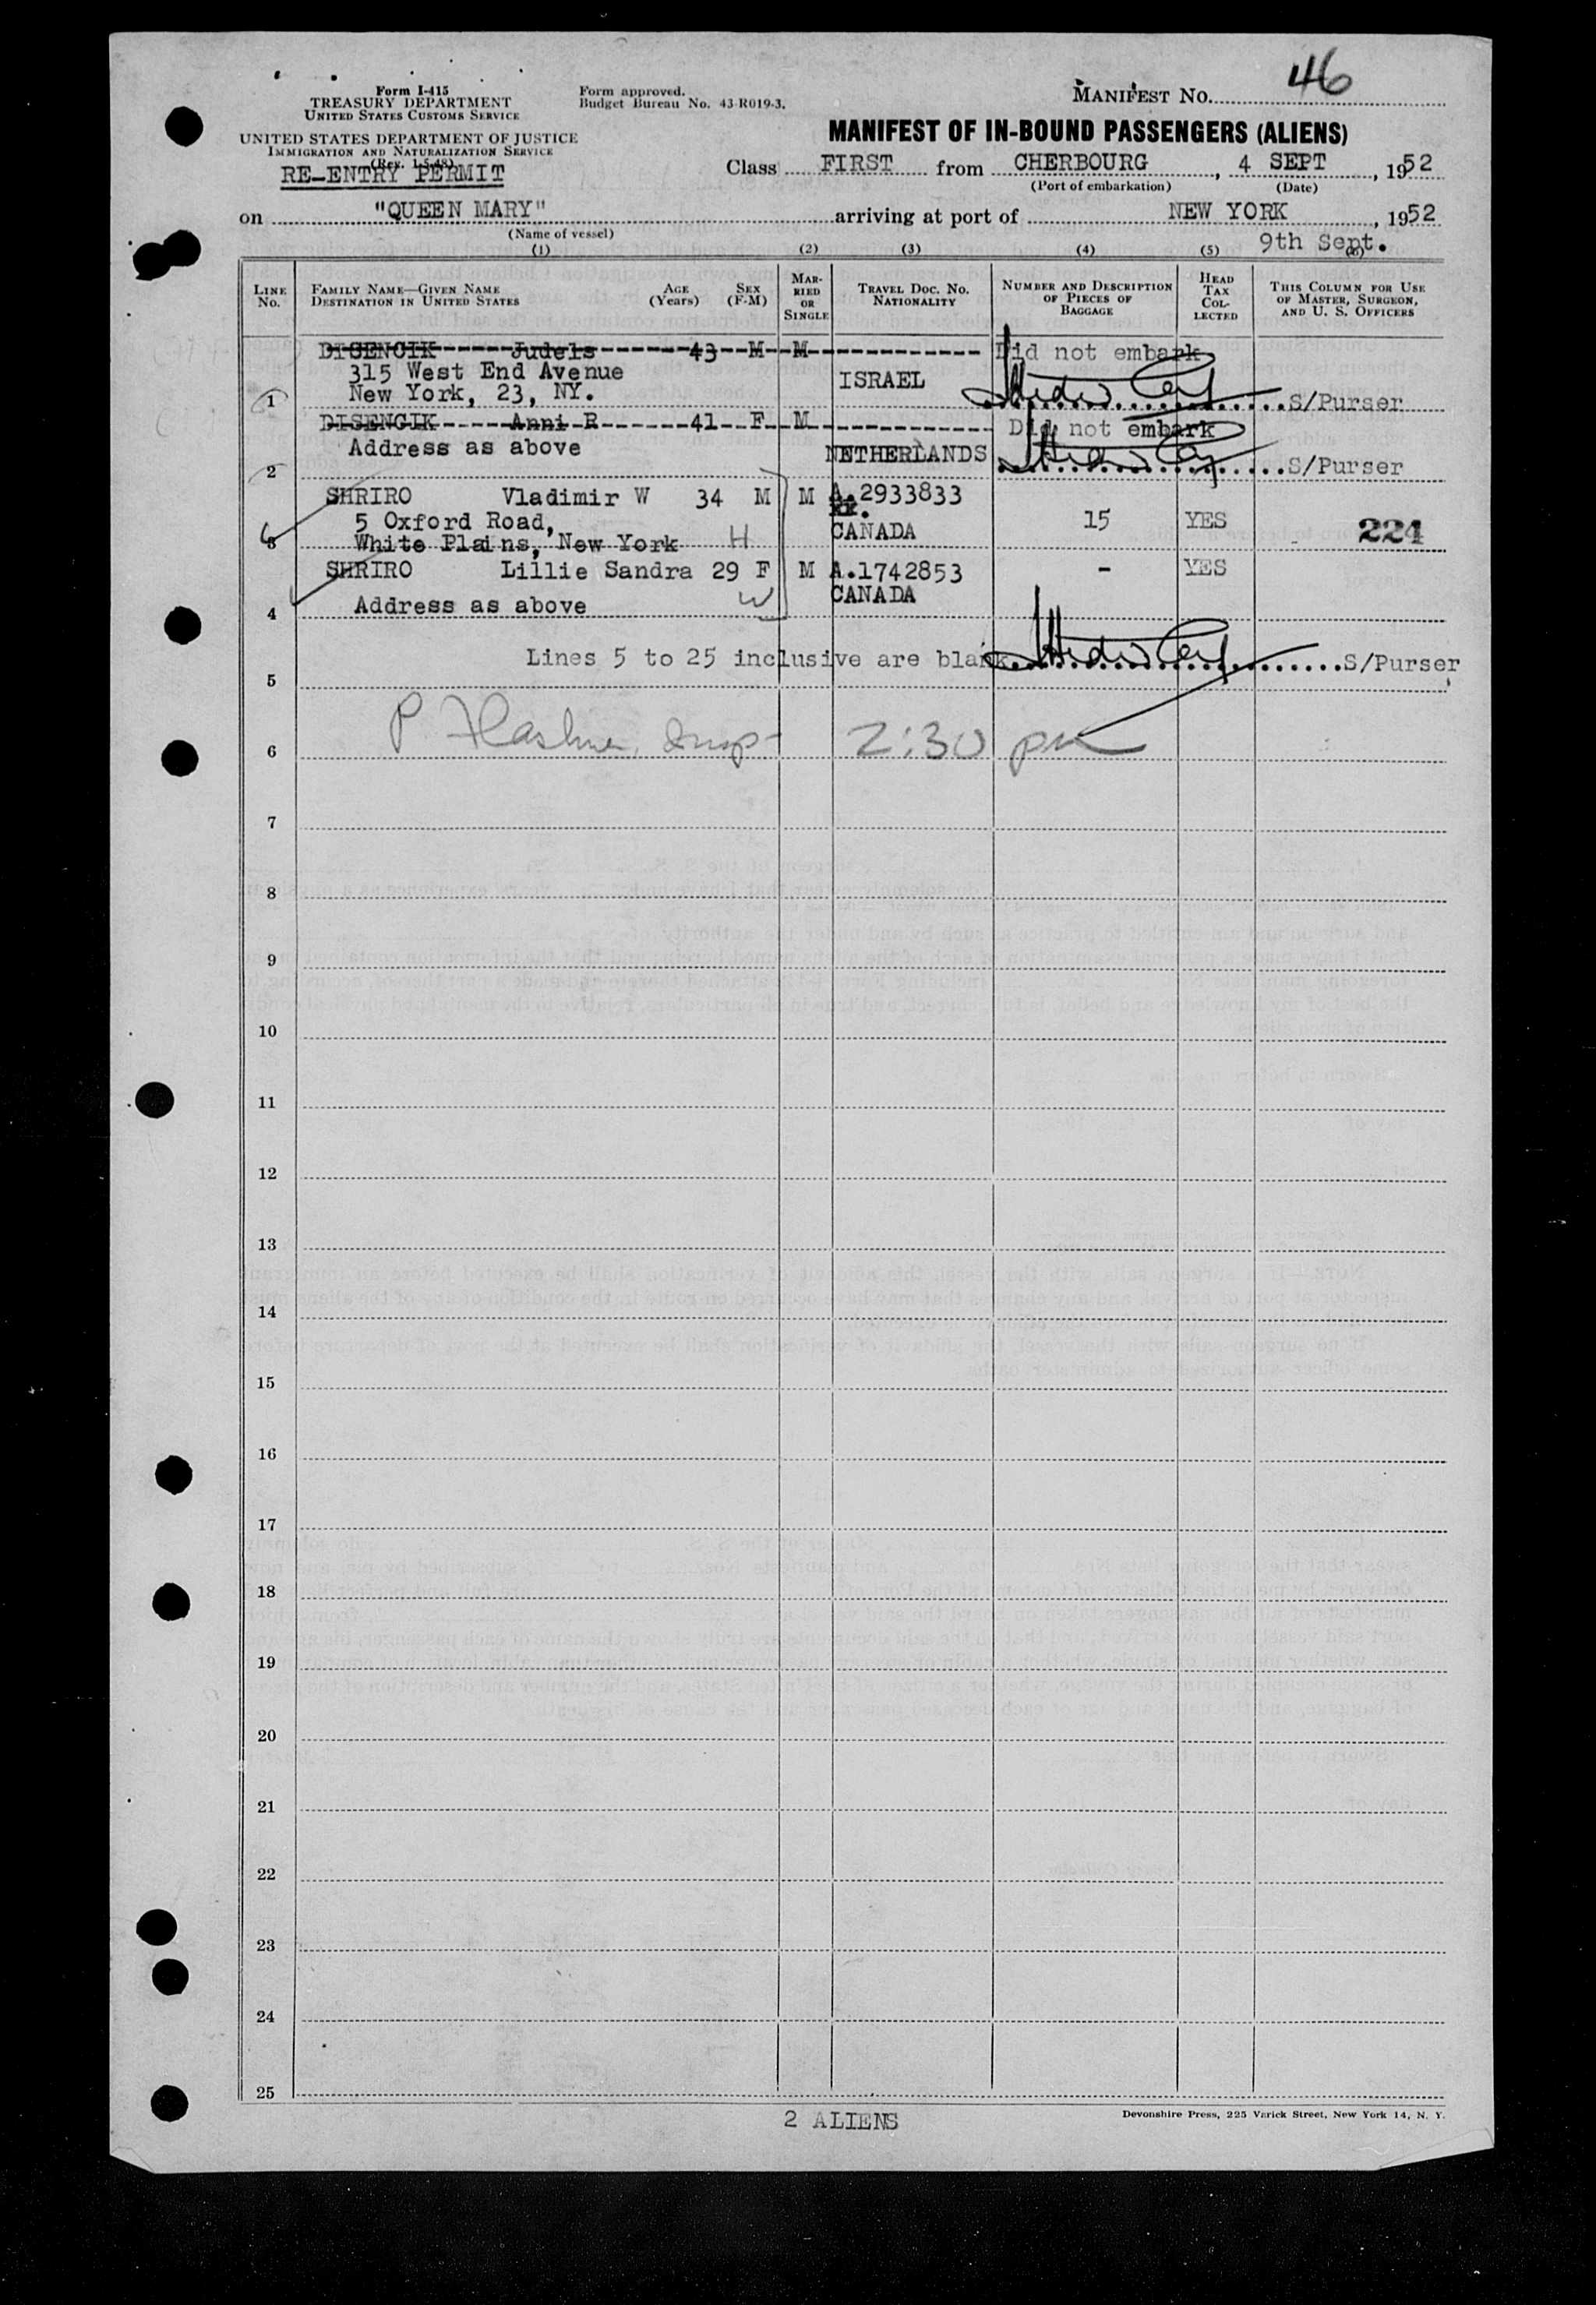 46
Form I-415
TREASURY DEPARTMENT
UNITED STATES CUSTOMS SERVICE
Form approved.
Budget Bureau No. 43-R019-3.
MANIFEST NO.
UNITED STATES DEPARTMENT OF JUSTICE
IMMIGRATION AND NATURALIZATION SERVICE
(Rev. 1-5-48)
RE-ENTRY PERMIT
MANIFEST OF IN-BOUND PASSENGERS (ALIENS)
Class FIRST from CHERBOURG, 4 SEPT, 1952
(Port of embarkation) (Date)
on "QUEEN MARY" arriving at port of NEW YORK, 1952
(Name of vessel)
9th Sept.
(1) (2) (3) (4) (5) (6)
LINE No. FAMILY NAME—GIVEN NAME DESTINATION IN UNITED STATES AGE (Years) SEX (F-M) MARRIED OR SINGLE TRAVEL DOC. NO. NATIONALITY NUMBER AND DESCRIPTION OF PIECES OF BAGGAGE HEAD TAX COLLECTED THIS COLUMN FOR USE OF MASTER, SURGEON, AND U. S. OFFICERS
DISENCIK Judels 43 M M Did not embark
315 West End Avenue ISRAEL
1 New York, 23, NY. S/Purser
DISENCIK Anni R 41 F M Did not embark
Address as above NETHERLANDS
2 S/Purser
SHRIRO Vladimir W 34 M M A.2933833
5 Oxford Road, 15 YES
3 White Plains, New York H CANADA 224
SHRIRO Lillie Sandra 29 F M A.1742853 - YES
4 Address as above W CANADA
Lines 5 to 25 inclusive are blank. S/Purser
5
6 P. Insp- 2:30 pm
7
8
9
10
11
12
13
14
15
16
17
18
19
20
21
22
23
24
25
2 ALIENS
Devonshire Press, 225 Varick Street, New York 14, N. Y.